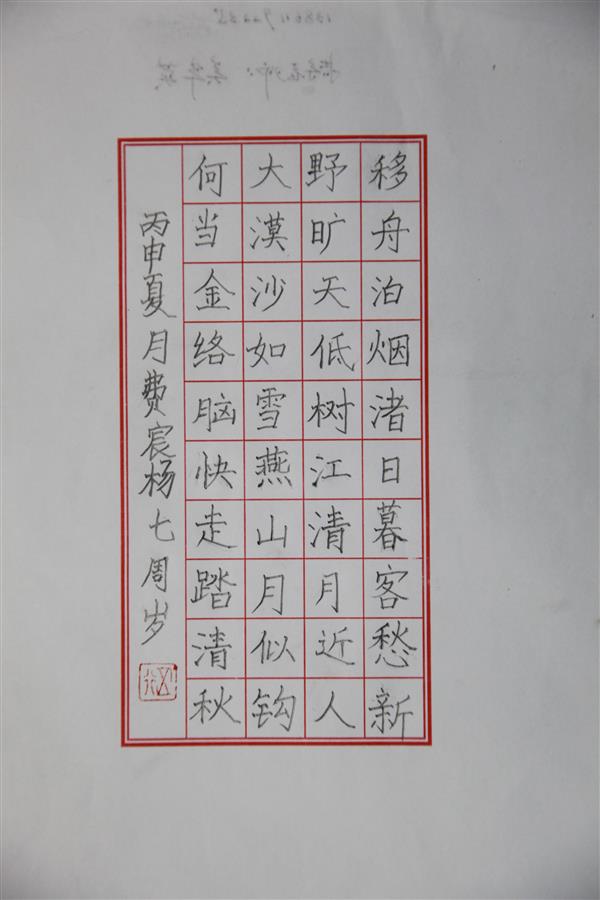 移舟泊烟渚日暮客愁新
野旷天低树江清月近人
大漠沙如雪燕山月似钩
何当金络脑快走踏清秋
丙申夏月费宸杨七周岁